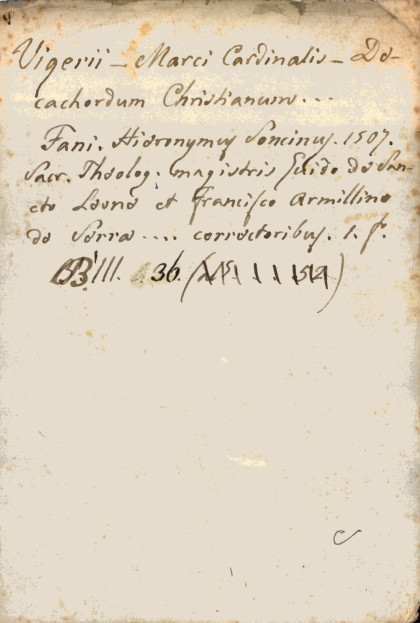 Vigerii - Marci Cardinalis - De-
cachordum Christianum...
Fani. Hieronymus Soncinus. 1507.
Sacr. Theolog. magistris Guido de San-
cto Leone et Francisco Armillino
de Serra .... correctoribus. 1. f.
B III. 36.